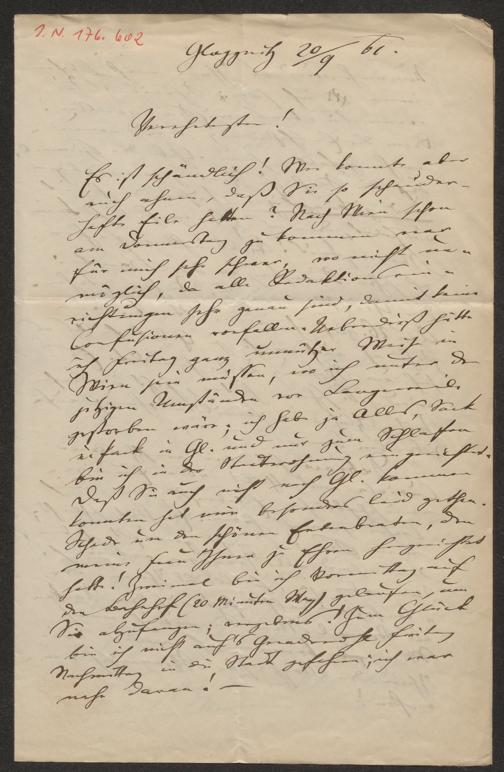 J. N. 176.602
Gloggnitz 20/9 61.
Verehrtester!
Es ist schändlich! Wer konnte aber
auch ahnen, daß Sie so schauder-
hafte Eile hatten? Nach Wien schon
am Donnerstag zu kommen war
für mich sehr schwer, wo nicht un-
möglich, da alle Redaktionsein-
richtungen sehr genau sind, damit keine
Confusionen vorfallen. Ueberdieß hätte
ich Freitag ganz unnützer Weise in
Wien sein müssen, wo ich unter den
jetzigen Umständen vor Langeweile
gestorben wäre; ich habe ja Alles, Sack
u. Pack in Gl. und nur zum Schlafen
bin ich in der Stadtwohnung eingerichtet.
Daß Sie auch nicht nach Gl. kommen
konnten hat mir besonders leid gethan.
Schade um den schönen Entenbraten, den
meine Frau Ihnen zu Ehren hergerichtet
hatte! Zweimal bin ich Vormittag auf
den Bahnhof (20 Minuten Weg) gelaufen, um
Sie abzufangen; vergebens! Zum Glück
bin ich nicht auf's Geradewohl Freitag
Nachmittag in die Stadt gefahren; ich war
nahe daran! —